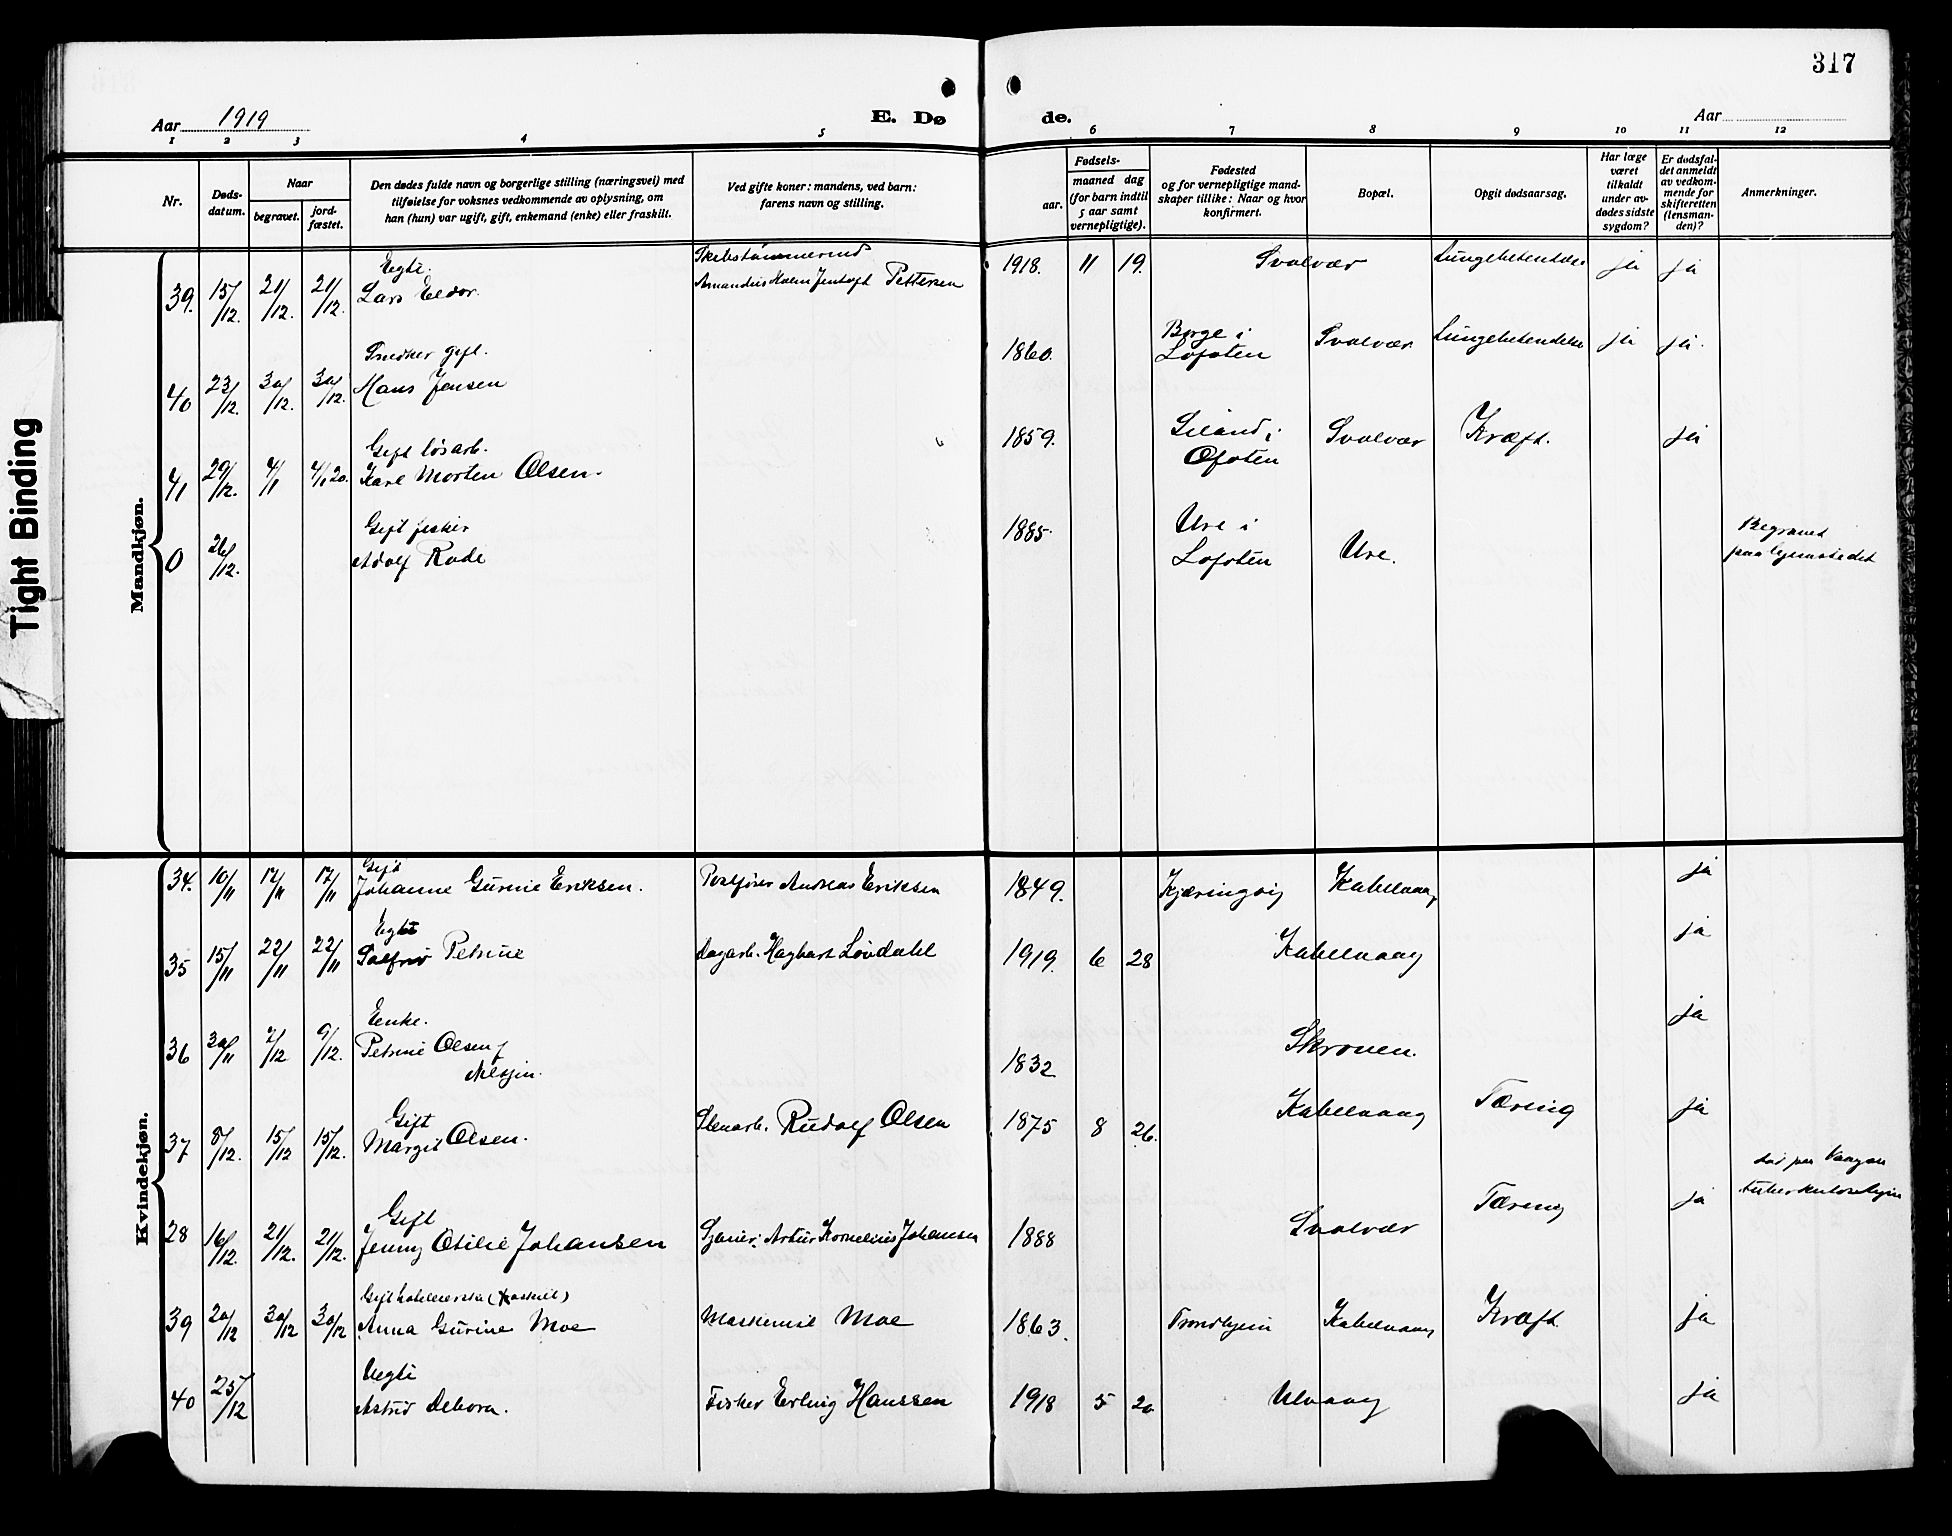 317
Aar 1919
E. Dø
de.
Aar
1 2 3 4 5 6 7 8 9 10 11 12
Nr.
Døds-
datum.
Naar
begravet.
jord-
fæstet.
Den dødes fulde navn og borgerlige stilling (næringsvei) med
tilføielse for voksnes vedkommende av oplysning, om
han (hun) var ugift, gift, enkemand (enke) eller fraskilt.
Ved gifte koner: mandens, ved barn:
farens navn og stilling.
Fødsels-
aar.
maaned dag
(for barn indtil
5 aar samt
vernepligtige).
Fødested
og for vernepligtige mand-
skaper tillike: Naar og hvor
konfirmert.
Bopæl.
Opgit dødsaarsag.
Har læge
været
tilkaldt
under av-
dødes sidste
sygdom?
Er dødsfal-
det anmeldt
av vedkom-
mende for
skifteretten
(lensman-
den)?
Anmerkninger.
Tight Binding
Mandkjøn.
Egte.
39. 15/12. 21/12. 21/12. Lars Eldor. Pettersen 1918. 11 19. Svolvær ja ja
Snedker gift.
40 23/12. 30/12. 30/12. Hans Jensen 1860. Borge i
Lofoten Svolvær ja ja.
Gift løsarb.
41 29/12. 4/1 4/1 20. Karl Morten Olsen. 1859.
Ofoten Svolvær Kræft. ja
Gift fisker
0 26/12. Adolf Rode 1885. Ure i
Lofoten Ure. Begravet
paa hjemstedet
Kvindekjøn.
Gift
34. 10/11 17/11 17/11 Johanne Gurine Eriksen. Andreas Eriksen 1849. Kjæringvig Kabelvaag ja
Egte
35 15/11 22/11 22/11 Petrine Dagarb. Hagbart Løvdahl 1919. 6 28 Kabelvaag ja
Enke.
36 30/11 9/12. Petrine Olsen 1832 Skroven. ja
Gift
37 8/12. 15/12 15/12. Margit Olsen. Stenarb. Rudolf Olsen 1875 8 26. Kabelvaag Tæring ja
Gift
28 16/12. 21/12. 21/12. Jenny Otilie Johansen Artur Kornelius Johansen 1888 Svolvær Tæring ja død paa Vaagan
tuberkulosehjem
39 20/12 30/12 30/12 Anna Gurine Moe Maskinist Moe 1863. Trondhjem Kabelvaag Kræft. ja
Uegte
40 25/12 Astrid Debora. Fisker Erling Hanssen 1918 5 20 Ulvaag ja